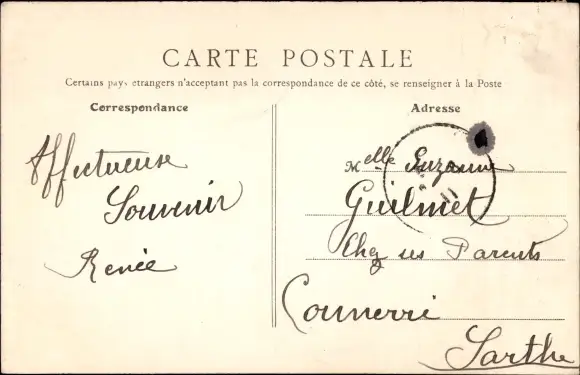 CARTE POSTALE
Certains pays etrangers n'acceptant pas la correspondance de ce côté, se renseigner à la Poste
Correspondance
Affectueuse
Souvenir
Renée
Adresse
Melle Suzanne
Guilmet
Chez ses Parents
Connerré
Sarthe